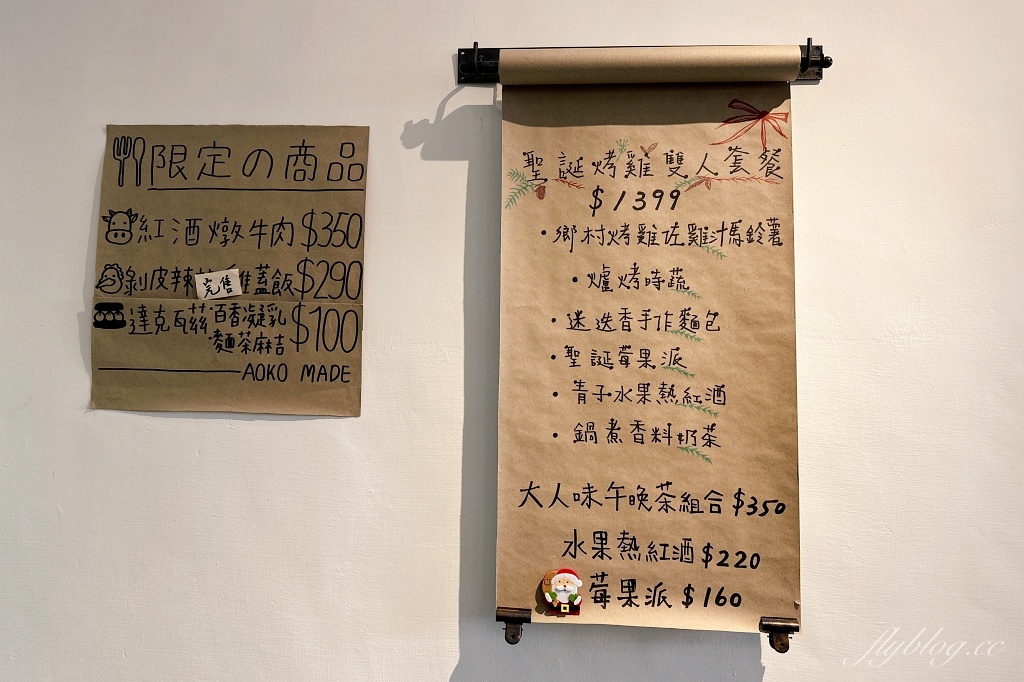 限定の商品
紅酒燉牛肉 $350
剝皮辣 雞蓋飯 $290
完售
達克瓦茲 百香凝乳 $100
麵茶麻吉
AOKO MADE
聖誕烤雞雙人套餐
$1399
・鄉村烤雞佐雞汁馬鈴薯
・爐烤時蔬
・迷迭香手作麵包
・聖誕莓果派
・青子水果熱紅酒
・鍋煮香料奶茶
大人味午晚茶組合 $350
水果熱紅酒 $220
莓果派 $160
flyblog.cc